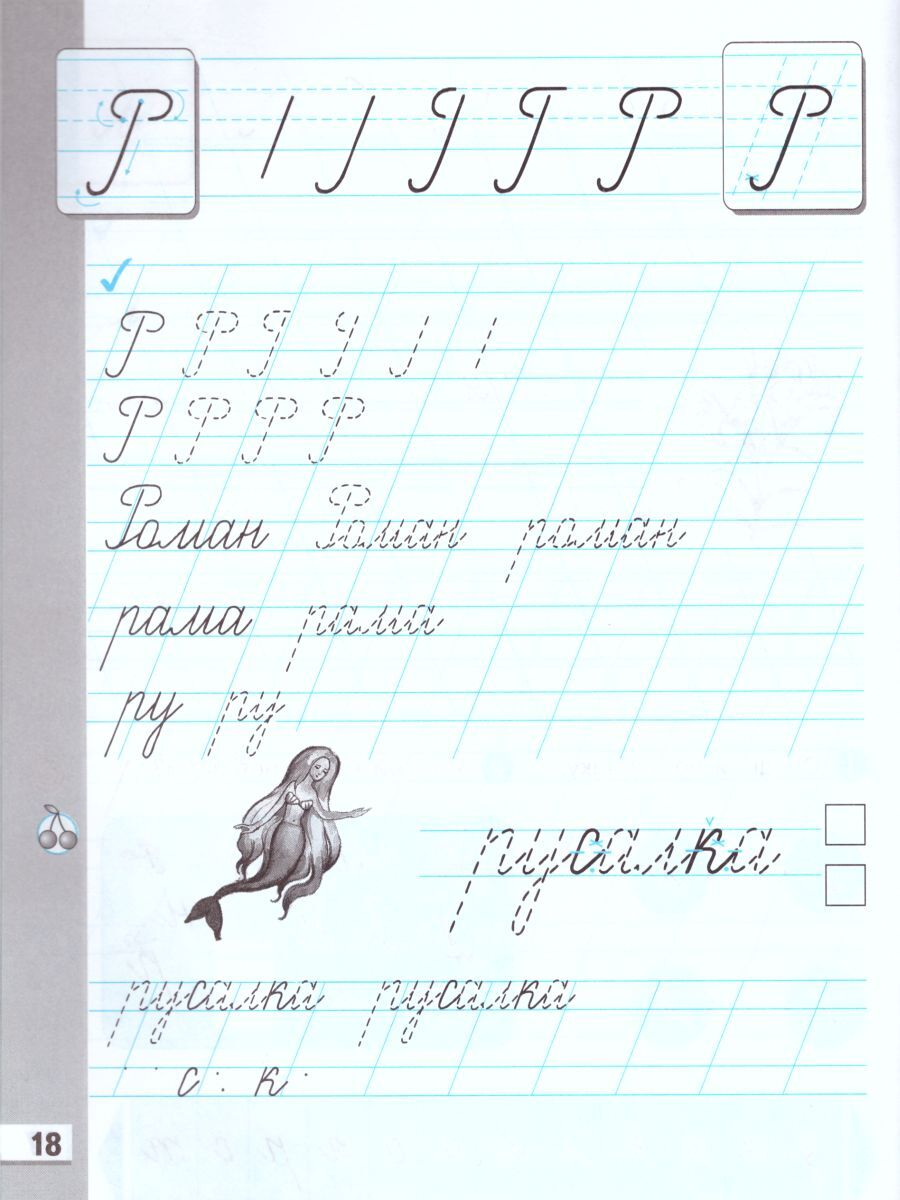 Р Р Р
Р Р
Р Р Р Р
Роман Роман роман
рама рама
ру ру
русалка
русалка русалка
с к
18